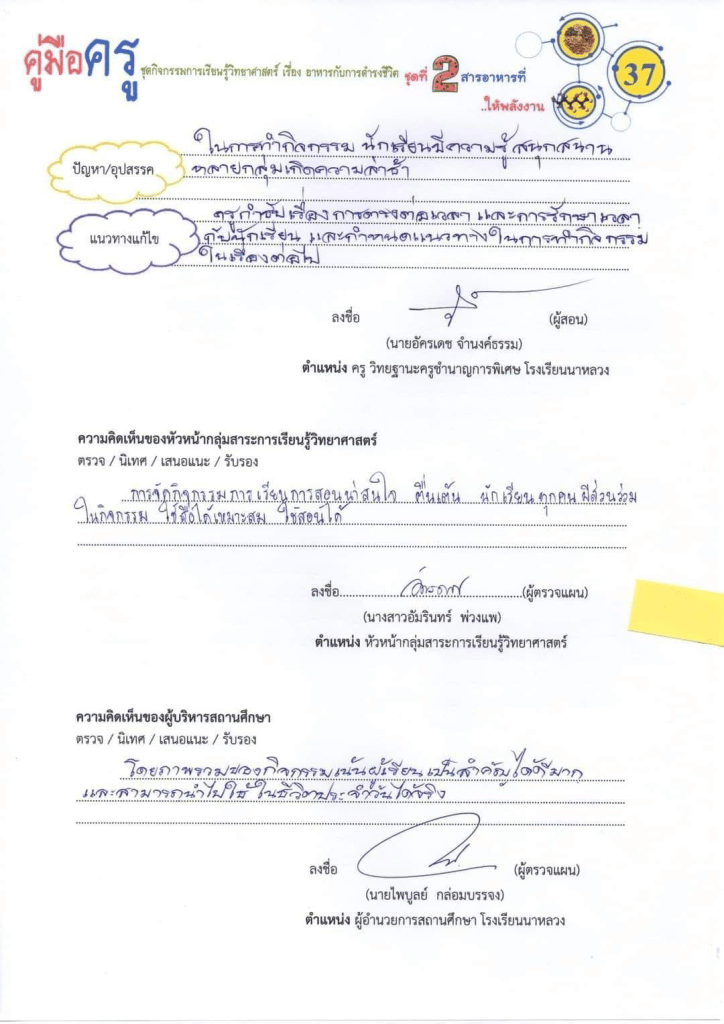 คู่มือครู ชุดกิจกรรมการเรียนรู้วิทยาศาสตร์ เรื่อง อาหารกับการดำรงชีวิต ชุดที่ 2 สารอาหารที่
..ให้พลังงาน
37
ปัญหา/อุปสรรค
ในการทำกิจกรรม นักเรียนมีความรู้ สนุกสนาน
หลายกลุ่มเกิดความล่าช้า
แนวทางแก้ไข
ครูกำชับเรื่องการตรงต่อเวลา และการรักษาเวลา
กับนักเรียน และกำหนดแนวทางในการทำกิจกรรม
ในเรื่องต่อไป
ลงชื่อ (ผู้สอน)
(นายอัครเดช จำนงค์ธรรม)
ตำแหน่ง ครู วิทยฐานะครูชำนาญการพิเศษ โรงเรียนนาหลวง
ความคิดเห็นของหัวหน้ากลุ่มสาระการเรียนรู้วิทยาศาสตร์
ตรวจ / นิเทศ / เสนอแนะ / รับรอง
การจัดกิจกรรมการเรียนการสอนน่าสนใจ ตื่นเต้น นักเรียนทุกคนมีส่วนร่วม
ในกิจกรรม ใช้สื่อได้เหมาะสม ใช้สอนได้
ลงชื่อ (ผู้ตรวจแผน)
(นางสาวอัมรินทร์ พ่วงแพ)
ตำแหน่ง หัวหน้ากลุ่มสาระการเรียนรู้วิทยาศาสตร์
ความคิดเห็นของผู้บริหารสถานศึกษา
ตรวจ / นิเทศ / เสนอแนะ / รับรอง
โดยภาพรวมของกิจกรรมเน้นผู้เรียนเป็นสำคัญได้ดีมาก
และสามารถนำไปใช้ในชีวิตประจำวันได้จริง
ลงชื่อ (ผู้ตรวจแผน)
(นายไพบูลย์ กล่อมบรรจง)
ตำแหน่ง ผู้อำนวยการสถานศึกษา โรงเรียนนาหลวง